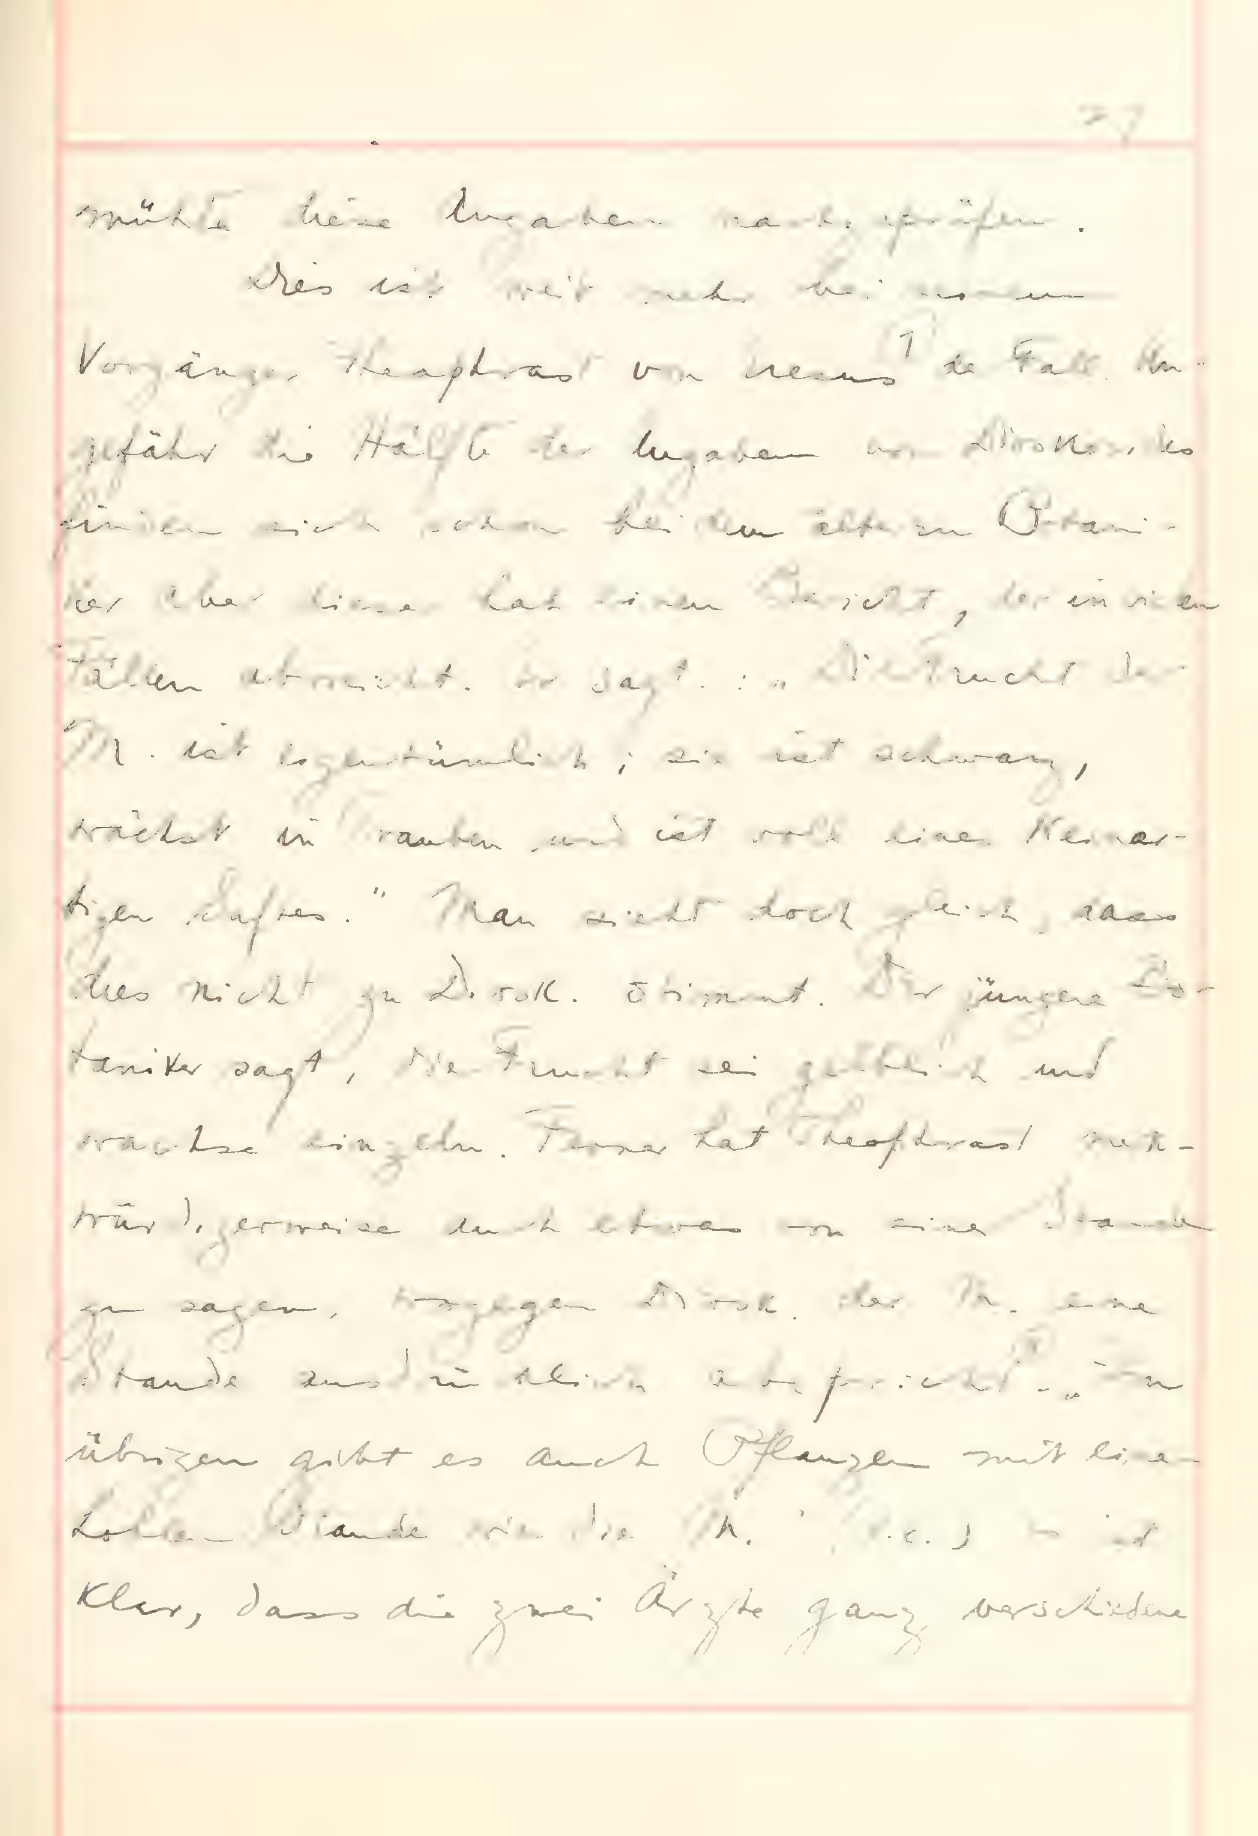 27
mühte diese Angaben nachzuprüfen.
Dies ist weit mehr bei
Vorgänger Theophrast von 1 de Fall. Un-
gefähr die Hälfte der Angaben von Dioskorides
finden sich schon bei dem älteren Botani-
ker aber dieser hat einen Bericht, der in vielen
Fällen abweicht. Er sagt: „Die Frucht der
M. ist eigentümlich; sie ist schwarz,
wächst in Trauben und ist voll eines weinar-
tigen Saftes." Man sieht doch gleich, dass
dies nicht zu Diosk. stimmt. Der jüngere Bo-
taniker sagt, die Frucht sei gelblich und
wachse einzeln. Ferner hat Theophrast merk-
würdigerweise auch etwas von einer Staude
zu sagen, wogegen Diosk. der M. eine
Staude ausdrücklich abspricht. „Im
übrigen gibt es auch Pflanzen mit einer
hohlen Staude wie die M." (l.c.) Es ist
klar, dass die zwei Ärzte ganz verschiedene